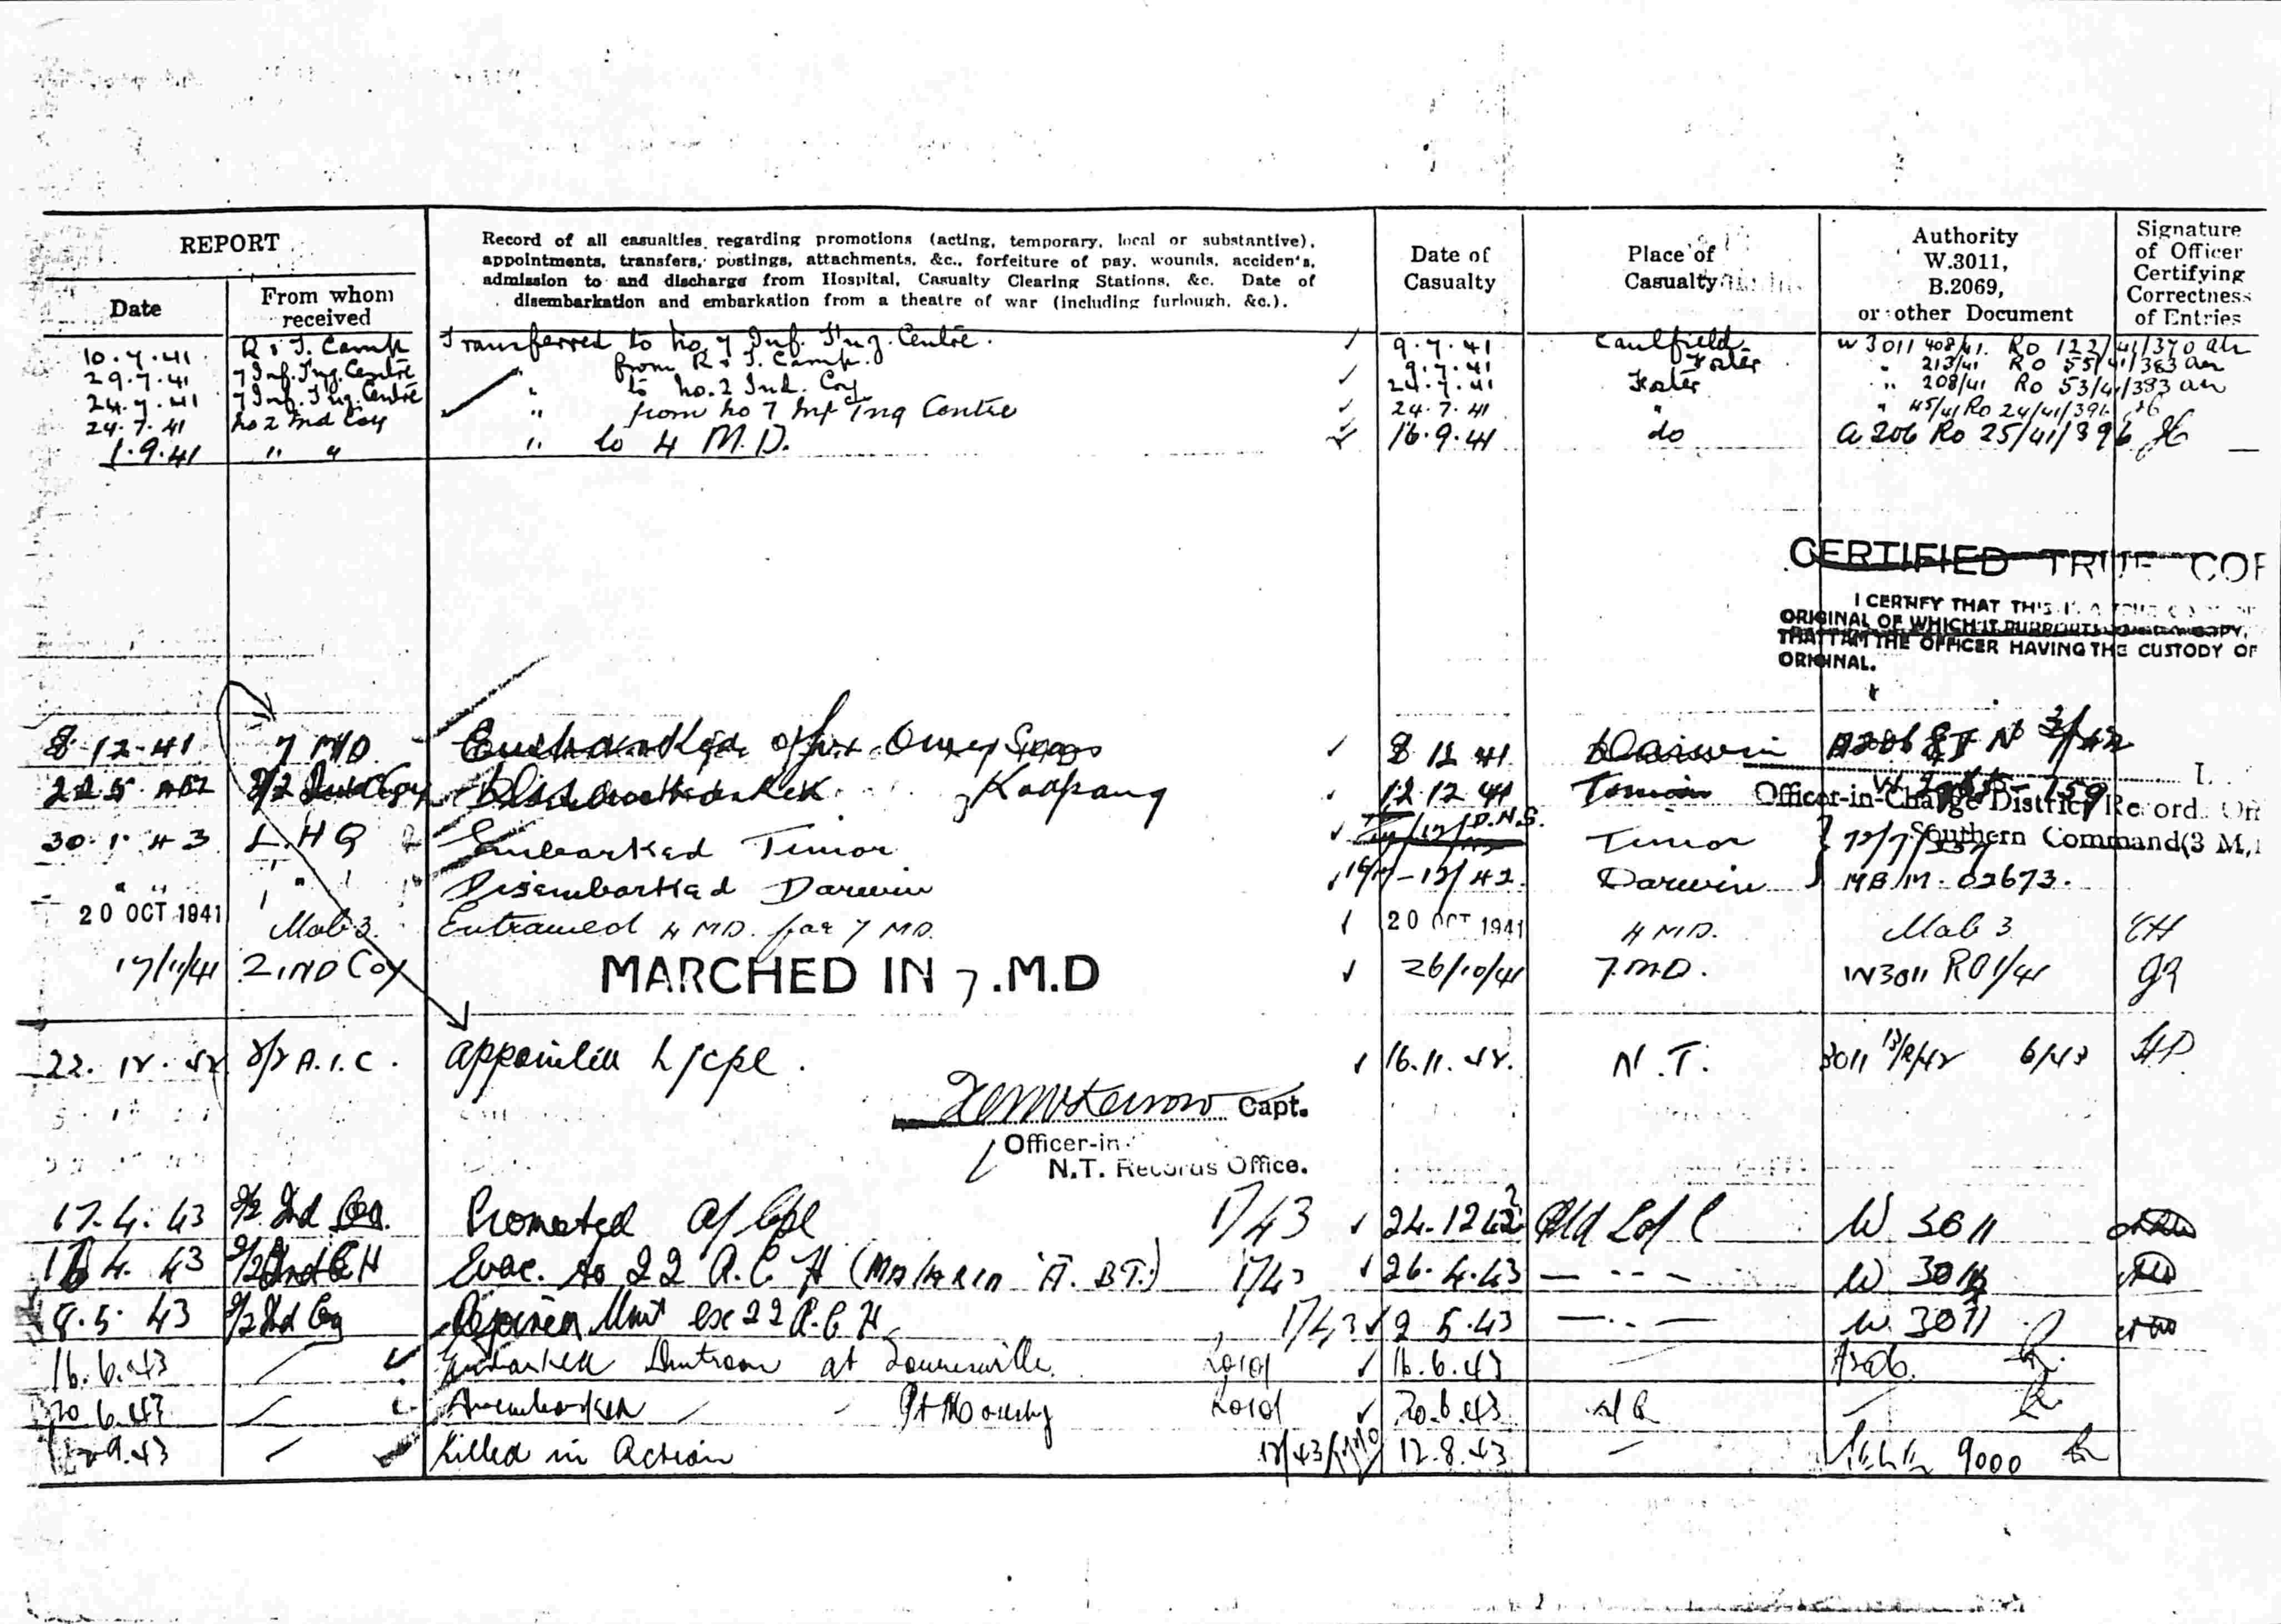 REPORT
Record of all casualties regarding promotions (acting, temporary, local or substantive),
appointments, transfers, postings, attachments, &c., forfeiture of pay, wounds, accidents,
admission to and discharge from Hospital, Casualty Clearing Stations, &c. Date of
disembarkation and embarkation from a theatre of war (including furlough, &c.).
Date of
Casualty
Place of
Casualty
Authority
W.3011,
B.2069,
or other Document
Signature
of Officer
Certifying
Correctness
of Entries
Date
From whom
received
10.7.41 R & T. Camp Transferred to No. 7 Inf. Tng. Centre. 9.7.41 Caulfield W 3011 408/41. RO 122/41/370
29.7.41 7 Inf. Tng. Centre " from R & T. Camp. 9.7.41 Foster " 213/41 RO 55/41/383
24.7.41 7 Inf. Tng. Centre " to No. 2 Ind. Coy 24.7.41 Foster " 208/41 RO 53/41/383
24.7.41 No 2 Ind Coy " from No 7 Inf Tng Centre 24.7.41 " " 45/41 RO 24/41/391
1.9.41 " " " to 4 M.D. 16.9.41 do A 206 RO 25/41/396
CERTIFIED TRUE COP
I CERTIFY THAT THIS IS A TRUE COPY OF
ORIGINAL OF WHICH IT PURPORTS COPY,
THAT I AM THE OFFICER HAVING THE CUSTODY OF
ORIGINAL.
8.12.41 7 MD Embarked for Overseas 8 12 41 Darwin
2/2 Ind Coy Disembarked Koepang 12.12.41 Timor
Officer-in-Charge District Record Off
Southern Command (3 M.
30.1.43 L.HQ Embarked Timor Timor
" " " Disembarked Darwin Darwin MB/M. 02673.
20 OCT 1941 Mob 3. Entrained 4 MD. for 7 MD. 20 OCT 1941 4 MD. Mob 3
17/11/41 2 IND Coy MARCHED IN 7.M.D 26/10/41 7.M.D. W3011 RO1/41
22.12.42 2/2 A.I.C. appointed L/cpl. 16.11.42. N.T. 3011 6/43
Capt.
Officer-in-
N.T. Records Office.
17.4.43 2/2 Ind Coy. Promoted A/Cpl 1/43 24.12.42 L of C W 3011
4.43 Evac. to 22 A.C.H (Malaria B.T.) 1/43 26.4.43 W 3011
8.5.43 2/2 Ind Coy Rejoined Unit ex 22 A.C.H. 1/43 2 5.43 W. 3011
16.6.43 Embarked Duntroon at Townsville 16.6.43
20.6.43 Disembarked Pt Moresby 20.6.43
9.43 Killed in Action 12.8.43 9000